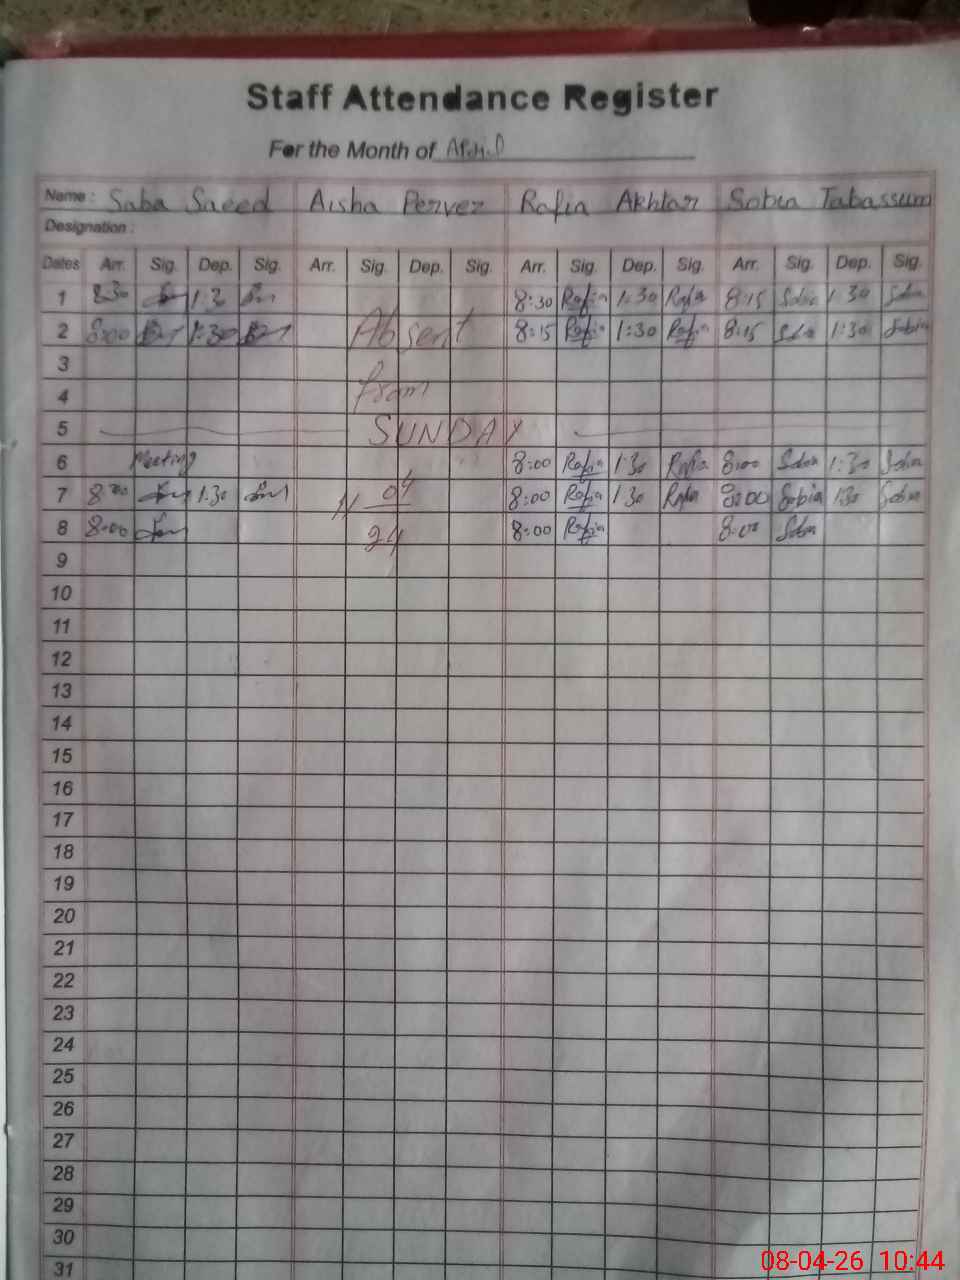 Staff Attendance Register
For the Month of April
Name : Saba Saeed Aisha Perver Rafia Akhtar Sobia Tabassum
Designation :
Dates Arr. Sig. Dep. Sig. Arr. Sig. Dep. Sig. Arr. Sig. Dep. Sig. Arr. Sig. Dep. Sig.
1 8:30 1:30 8:30 Rafia 1:30 Rafia 8:15 Sobia 1:30 Sobia
2 8:00 1:30 Absent 8:15 Rafia 1:30 Rafia 8:15 Sobia 1:30 Sobia
3
4 from
5 SUNDAY
6 Meeting 8:00 Rafia 1:30 Rafia 8:00 Sobia 1:30 Sobia
7 1:30 04 8:00 Rafia 1:30 Rafia 8:00 Sobia 1:30 Sobia
8 8:00 24 8:00 Rafia 8:00 Sobia
9
10
11
12
13
14
15
16
17
18
19
20
21
22
23
24
25
26
27
28
29
30
31
08-04-26 10:44